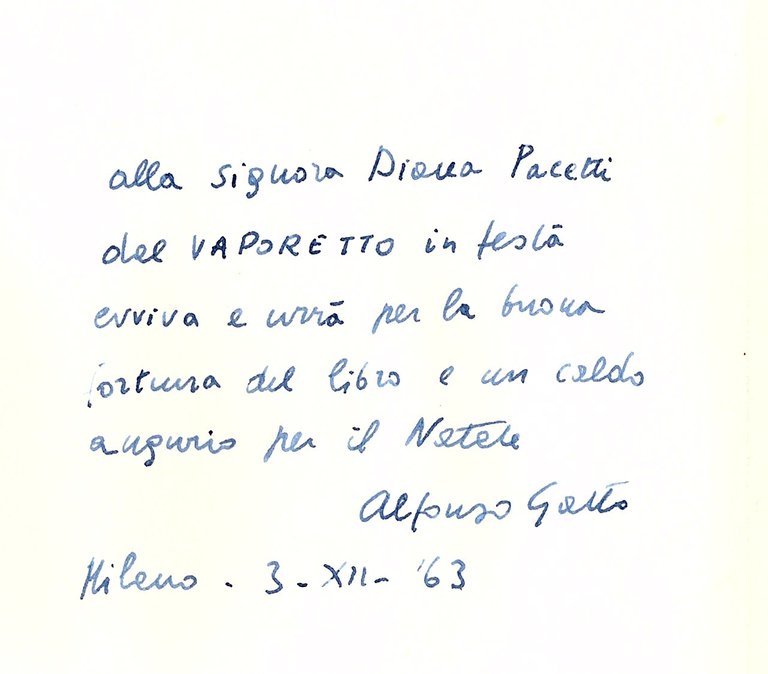 alla signora Diana Pacetti
del VAPORETTO in testa
evviva e urrà per la buona
fortuna del libro e un caldo
augurio per il Natale
Alfonso Gatto
Milano - 3 - XII - '63